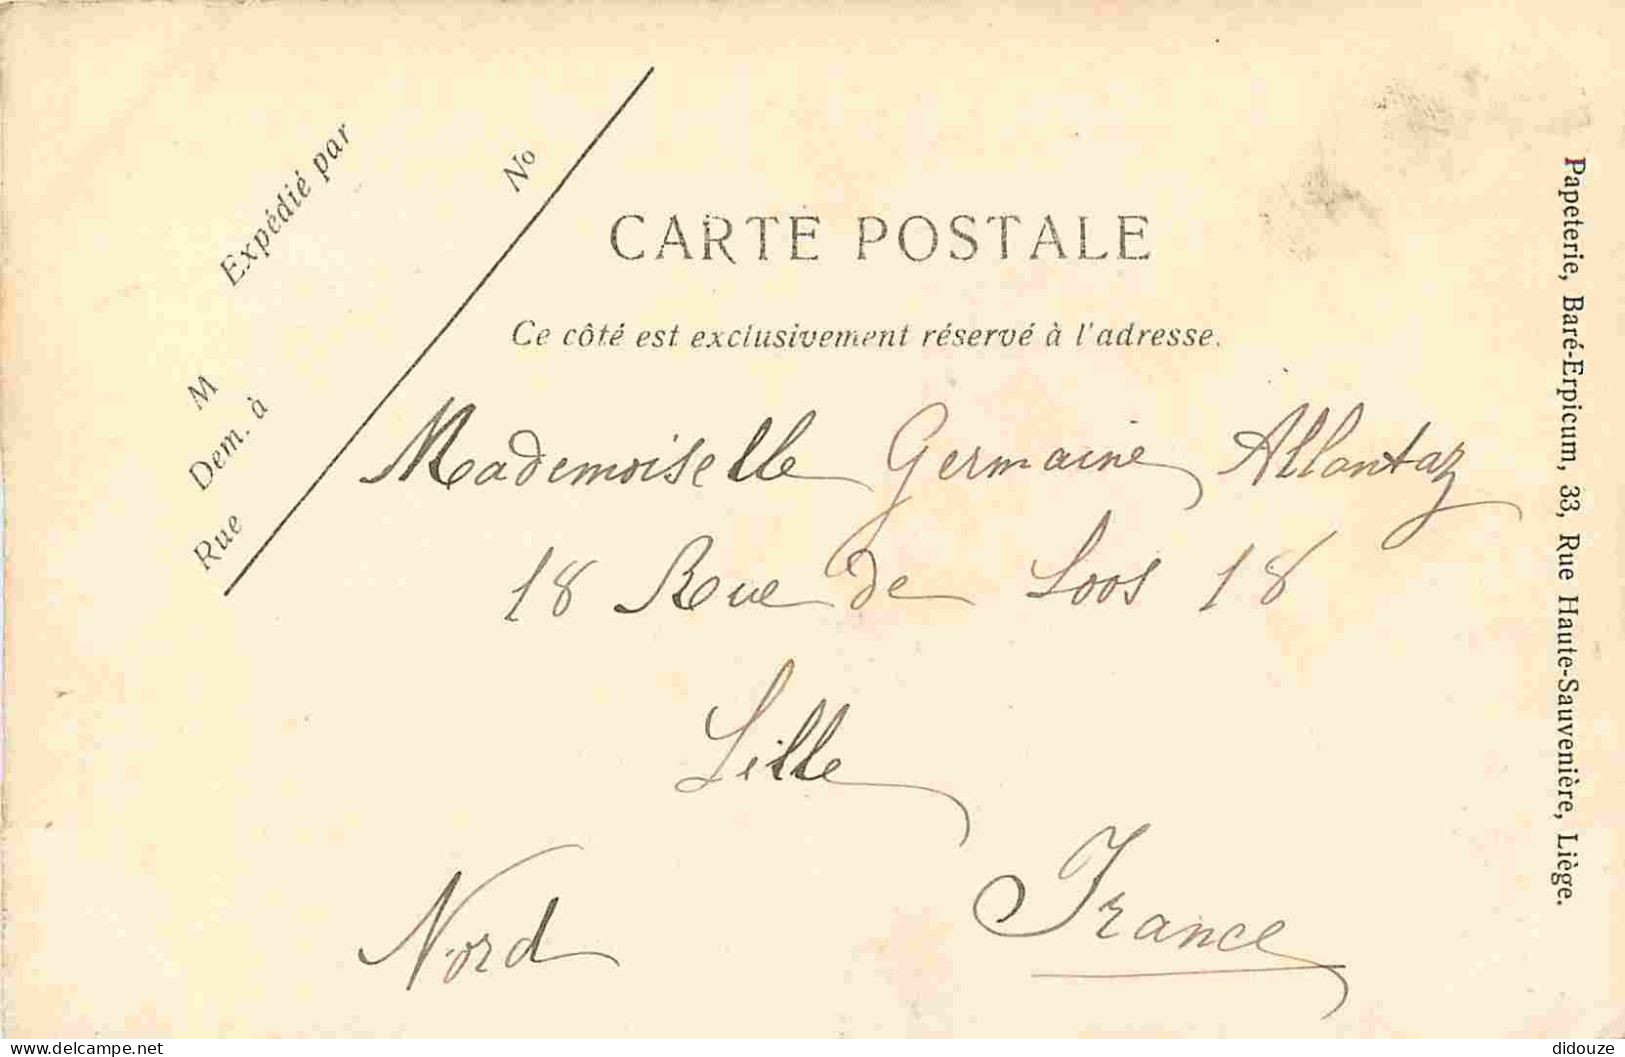 Expédié par
No
M
Dem. à
Rue
CARTE POSTALE
Ce côté est exclusivement réservé à l'adresse.
Mademoiselle Germaine Allantaz
18 Rue de Loos 18
Lille
Nord
France
Papeterie, Baré-Erpicum, 33, Rue Haute-Sauvenière, Liège.
delcampe.net
didouze